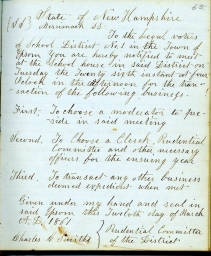 State of New Hampshire
Merrimack SS
To the legal voters
of School District No 1 in the Town of
Epsom you are hereby notified to meet
at the School house in said District on
Tuesday the Twenty sixth instant at four
Oclock in the afternoon for the tran-
saction of the following business.
First. To choose a moderator to pre-
side in said meeting
Second. To Choose a Clerk, Prudential
Committee and other necessary
officers for the ensuing year
Third. To transact any other business
deemed expedient when met
Given under my hand and seal in
said Epsom this Twelfth day of March
A. D. 1861
Prudential Committee
Charles
of the District